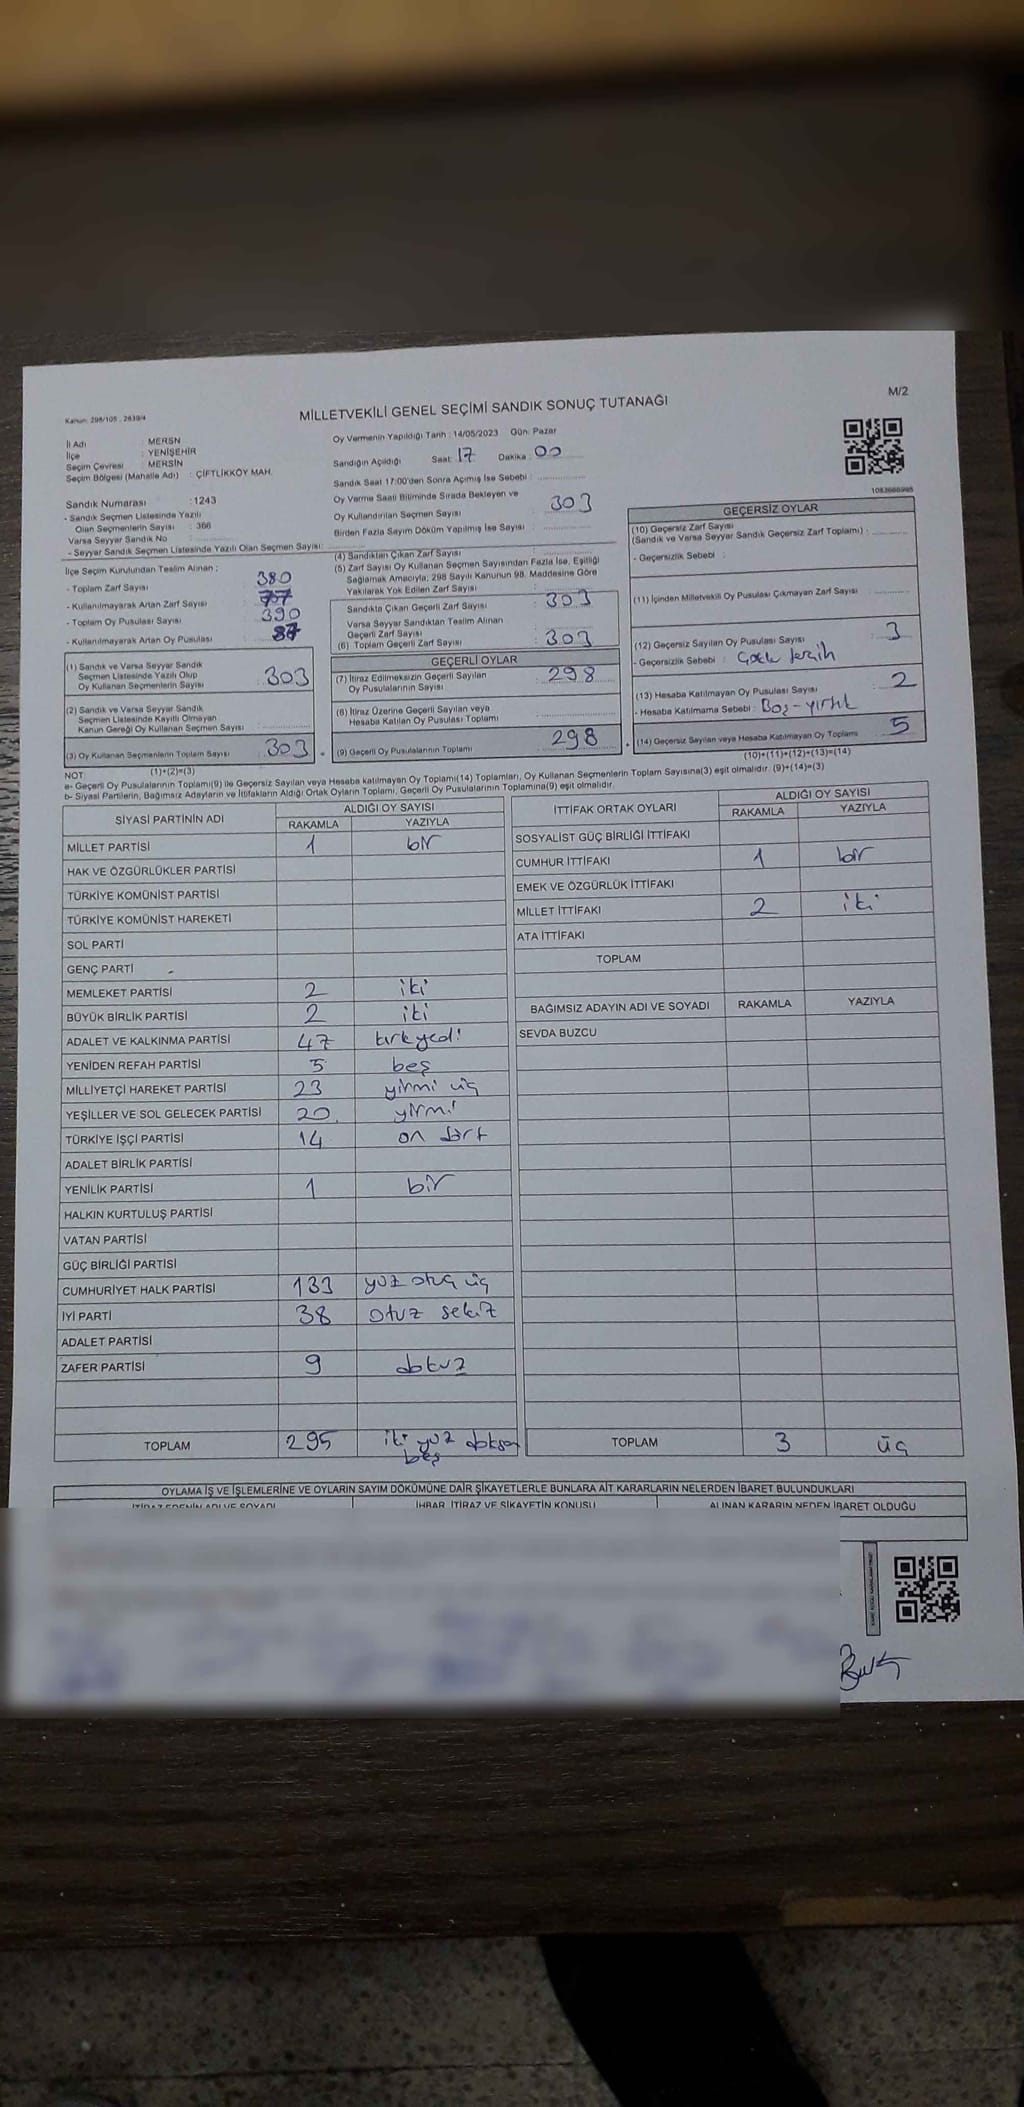 M/2
Kanun: 298/105 , 2839/4
MİLLETVEKİLİ GENEL SEÇİMİ SANDIK SONUÇ TUTANAĞI
İl Adı : MERSN
İlçe : YENİŞEHİR
Seçim Çevresi : MERSİN
Seçim Bölgesi (Mahalle Adı) : ÇİFTLİKKÖY MAH.
Sandık Numarası :1243
- Sandık Seçmen Listesinde Yazılı
Olan Seçmenlerin Sayısı : 366
Varsa Seyyar Sandık No
- Seyyar Sandık Seçmen Listesinde Yazılı Olan Seçmen Sayısı:
İlçe Seçim Kurulundan Teslim Alınan ;
- Toplam Zarf Sayısı 380
- Kullanılmayarak Artan Zarf Sayısı : 77
- Toplam Oy Pusulası Sayısı 390
- Kullanılmayarak Artan Oy Pusulası 87
(1) Sandık ve Varsa Seyyar Sandık
Seçmen Listesinde Yazılı Olup
Oy Kullanan Seçmenlerin Sayısı : 303
(2) Sandık ve Varsa Seyyar Sandık
Seçmen Listesinde Kayıtlı Olmayan
Kanun Gereği Oy Kullanan Seçmen Sayısı :
(3) Oy Kullanan Seçmenlerin Toplam Sayısı : 303
(1)+(2)=(3)
Oy Vermenin Yapıldığı Tarih : 14/05/2023 Gün: Pazar
Sandığın Açıldığı Saat: 17 Dakika : 00
Sandık Saat 17:00'den Sonra Açımış İse Sebebi :
Oy Verme Saati Bitiminde Sırada Bekleyen ve
Oy Kullandırılan Seçmen Sayısı : 303
Birden Fazla Sayım Döküm Yapılmış İse Sayısı :
(4) Sandıktan Çıkan Zarf Sayısı
(5) Zarf Sayısı Oy Kullanan Seçmen Sayısından Fazla İse, Eşitliği
Sağlamak Amacıyla; 298 Sayılı Kanunun 98. Maddesine Göre
Yakılarak Yok Edilen Zarf Sayısı :
Sandıkta Çıkan Geçerli Zarf Sayısı : 303
Varsa Seyyar Sandıktan Teslim Alınan
Geçerli Zarf Sayısı
(6) Toplam Geçerli Zarf Sayısı : 303
GEÇERLİ OYLAR
(7) İtiraz Edilmeksizin Geçerli Sayılan
Oy Pusulalarının Sayısı : 298
(8) İtiraz Üzerine Geçerli Sayılan veya
Hesaba Katılan Oy Pusulası Toplamı
(9) Geçerli Oy Pusulalarının Toplamı : 298
1083666995
GEÇERSİZ OYLAR
(10) Geçersiz Zarf Sayısı
(Sandık ve Varsa Seyyar Sandık Geçersiz Zarf Toplamı) :
- Geçersizlik Sebebi :
(11) İçinden Milletvekili Oy Pusulası Çıkmayan Zarf Sayısı :
(12) Geçersiz Sayılan Oy Pusulası Sayısı : 3
- Geçersizlik Sebebi :
(13) Hesaba Katılmayan Oy Pusulası Sayısı : 2
- Hesaba Katılmama Sebebi : Boş-yırtık
(14) Geçersiz Sayılan veya Hesaba Katılmayan Oy Toplamı : 5
(10)+(11)+(12)+(13)=(14)
NOT
a- Geçerli Oy Pusulalarının Toplamı(9) ile Geçersiz Sayılan veya Hesaba katılmayan Oy Toplamı(14) Toplamları, Oy Kullanan Seçmenlerin Toplam Sayısına(3) eşit olmalıdır. (9)+(14)=(3)
b- Siyasi Partilerin, Bağımsız Adayların ve İttifakların Aldığı Ortak Oyların Toplamı, Geçerli Oy Pusulalarının Toplamına(9) eşit olmalıdır.
SİYASİ PARTİNİN ADI ALDIĞI OY SAYISI
RAKAMLA YAZIYLA
MİLLET PARTİSİ 1 bir
HAK VE ÖZGÜRLÜKLER PARTİSİ
TÜRKİYE KOMÜNİST PARTİSİ
TÜRKİYE KOMÜNİST HAREKETİ
SOL PARTİ
GENÇ PARTİ
MEMLEKET PARTİSİ 2 iki
BÜYÜK BİRLİK PARTİSİ 2 iki
ADALET VE KALKINMA PARTİSİ 47 kırkyedi
YENİDEN REFAH PARTİSİ 5 beş
MİLLİYETÇİ HAREKET PARTİSİ 23 yirmi üç
YEŞİLLER VE SOL GELECEK PARTİSİ 20 yirmi
TÜRKİYE İŞÇİ PARTİSİ 14 on dört
ADALET BİRLİK PARTİSİ
YENİLİK PARTİSİ 1 bir
HALKIN KURTULUŞ PARTİSİ
VATAN PARTİSİ
GÜÇ BİRLİĞİ PARTİSİ
CUMHURİYET HALK PARTİSİ 133 yüz otuz üç
İYİ PARTİ 38 otuz sekiz
ADALET PARTİSİ
ZAFER PARTİSİ 9 dokuz
TOPLAM 295 iki yüz doksan
beş
İTTİFAK ORTAK OYLARI ALDIĞI OY SAYISI
RAKAMLA YAZIYLA
SOSYALİST GÜÇ BİRLİĞİ İTTİFAKI
CUMHUR İTTİFAKI 1 bir
EMEK VE ÖZGÜRLÜK İTTİFAKI
MİLLET İTTİFAKI 2 iki
ATA İTTİFAKI
TOPLAM
BAĞIMSIZ ADAYIN ADI VE SOYADI RAKAMLA YAZIYLA
SEVDA BUZCU
TOPLAM 3 üç
OYLAMA İŞ VE İŞLEMLERİNE VE OYLARIN SAYIM DÖKÜMÜNE DAİR ŞİKAYETLERLE BUNLARA AİT KARARLARIN NELERDEN İBARET BULUNDUKLARI
İTİRAZ EDENİN ADI VE SOYADI İHBAR, İTİRAZ VE ŞİKAYETİN KONUSU ALINAN KARARIN NEDEN İBARET OLDUĞU